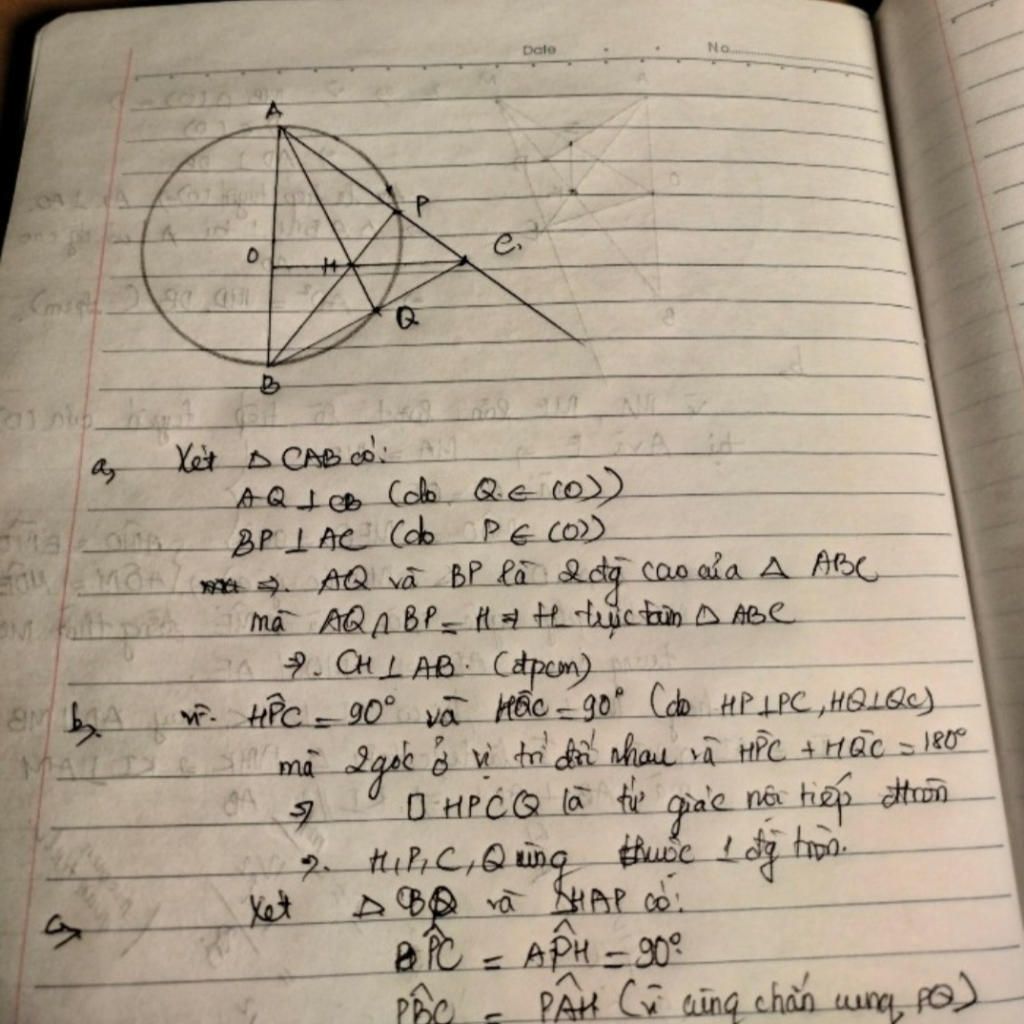 Date No.
A
P
O H C.
Q
B
a, Xét Δ CAB có:
AQ ⊥ CB (do Q ∈ (O))
BP ⊥ AC (do P ∈ (O))
⇒. AQ và BP là 2 đg cao của Δ ABC
mà AQ ∩ BP = H ⇒ H trực tâm Δ ABC
⇒. CH ⊥ AB. (đpcm)
b, vì. HP̂C = 90° và HQ̂C = 90° (do HP⊥PC, HQ⊥QC)
mà 2 góc ở vị trí đối nhau và HP̂C + HQ̂C = 180°
⇒ □ HPCQ là tứ giác nội tiếp đtròn
⇒. H, P, C, Q cùng thuộc 1 đg tròn.
c, Xét Δ và ΔHAP có:
BP̂C = AP̂H = 90°
PB̂C = PÂH (vì cùng chắn cung PQ)